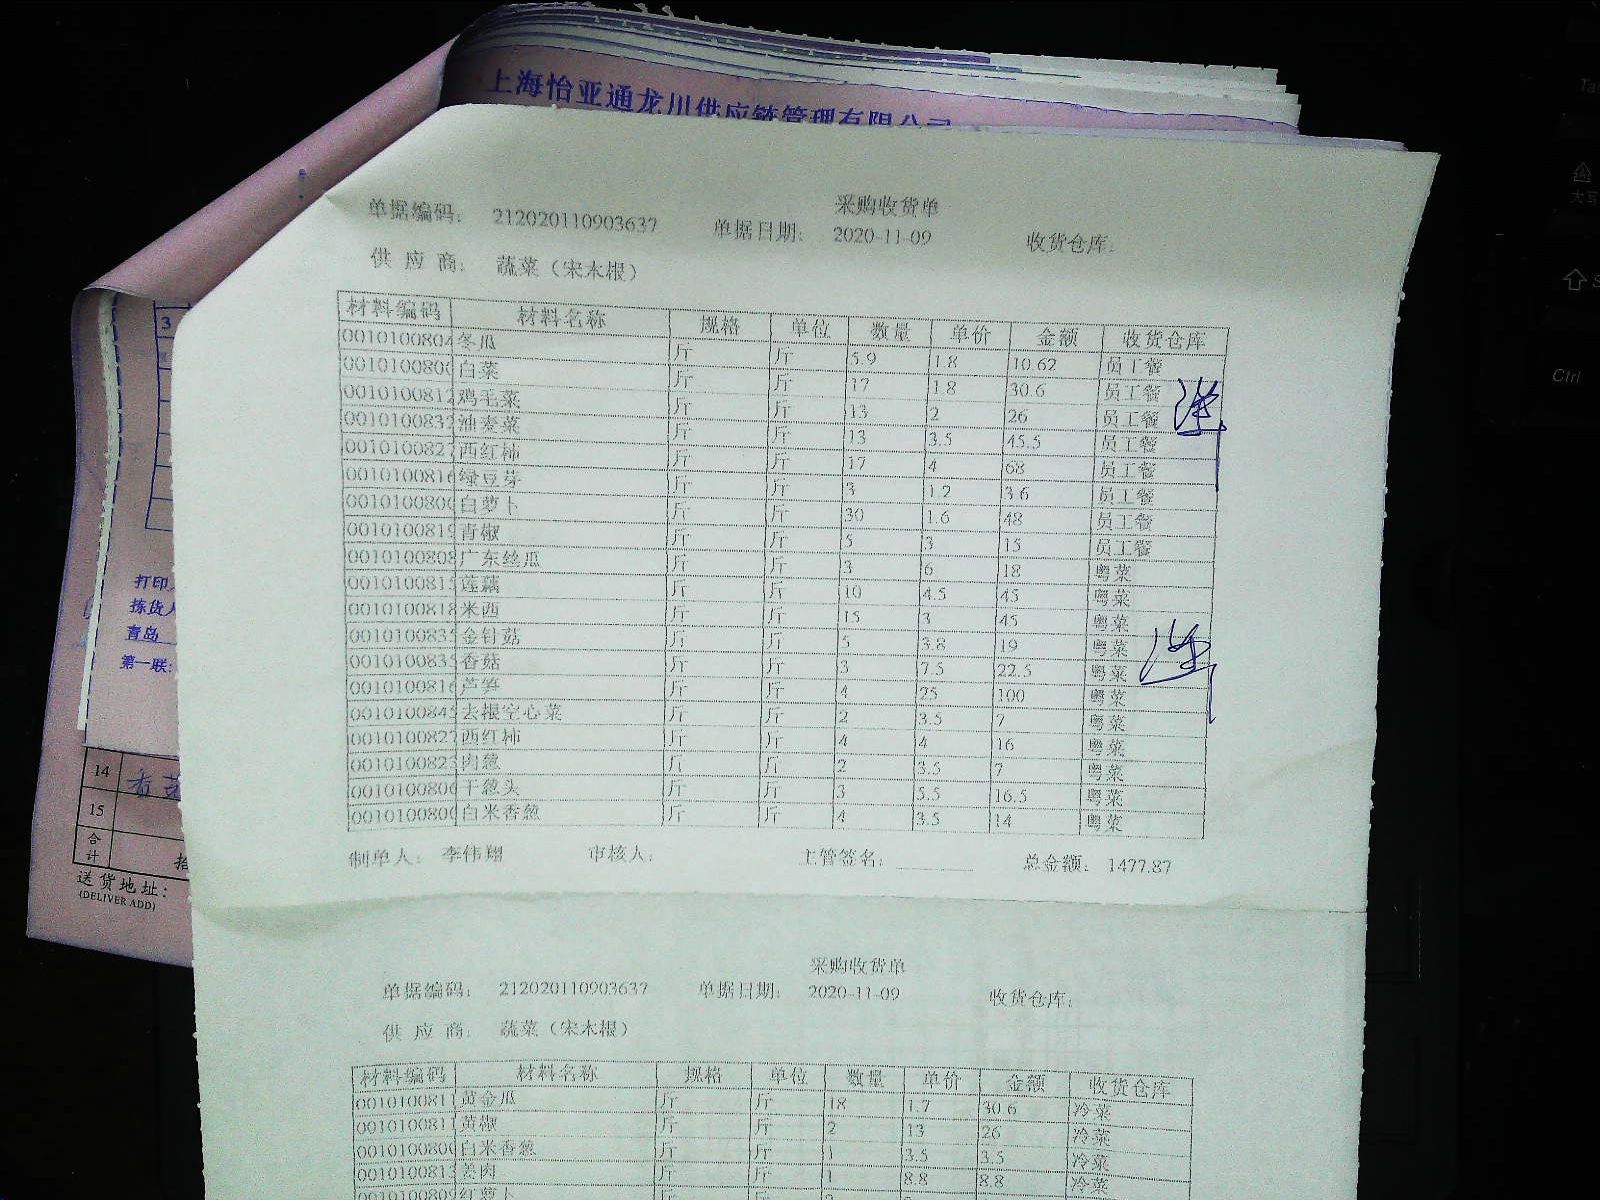 上海怡亚通龙川供应链管理有限公司
采购收货单
单据编码: 212020110903637 单据日期: 2020-11-09 收货仓库:
供 应 商: 蔬菜（宋木根）
材料编码 材料名称 规格 单位 数量 单价 金额 收货仓库
0010100804 冬瓜 斤 斤 5.9 1.8 10.62 员工餐
001010080 白菜 斤 斤 17 1.8 30.6 员工餐
0010100812 鸡毛菜 斤 斤 13 2 26 员工餐
0010100832 油麦菜 斤 斤 13 3.5 45.5 员工餐
0010100827 西红柿 斤 斤 17 4 68 员工餐
0010100816 绿豆芽 斤 斤 3 1.2 3.6 员工餐
001010080 白萝卜 斤 斤 30 1.6 48 员工餐
0010100819 青椒 斤 斤 5 3 15 员工餐
0010100808 广东丝瓜 斤 斤 3 6 18 粤菜
0010100815 莲藕 斤 斤 10 4.5 45 粤菜
0010100818 米西 斤 斤 15 3 45 粤菜
0010100835 金针菇 斤 斤 5 3.8 19 粤菜
0010100835 香菇 斤 斤 3 7.5 22.5 粤菜
0010100816 芦笋 斤 斤 4 25 100 粤菜
0010100845 去根空心菜 斤 斤 2 3.5 7 粤菜
0010100827 西红柿 斤 斤 4 4 16 粤菜
0010100823 肉葱 斤 斤 2 3.5 7 粤菜
0010100806 干葱头 斤 斤 3 5.5 16.5 粤菜
001010080 白米香葱 斤 斤 4 3.5 14 粤菜
制单人: 李伟翔 审核人: 主管签名: 总金额: 1477.87
采购收货单
单据编码: 212020110903637 单据日期: 2020-11-09 收货仓库:
供 应 商: 蔬菜（宋木根）
材料编码 材料名称 规格 单位 数量 单价 金额 收货仓库
0010100811 黄金瓜 斤 斤 18 1.7 30.6 冷菜
0010100811 黄椒 斤 斤 2 13 26 冷菜
001010080 白米香葱 斤 斤 1 3.5 3.5 冷菜
0010100813 姜肉 斤 斤 1 8.8 8.8 冷菜
001010080 红萝卜 斤 斤
3
打印
拣货人
青岛
第一联:
14
15
合计
送货地址:
(DELIVER ADD)
Ctrl